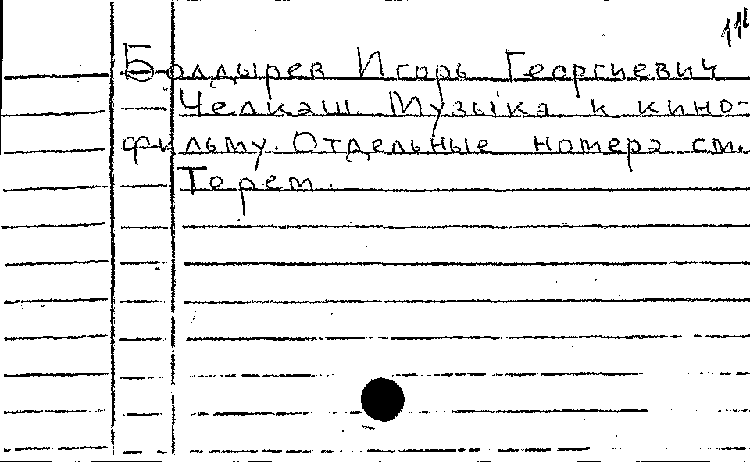 Болдырев Игорь Георгиевич
Челкаш Музыка к кино-
фильму. Отдельные номера см.
Терем.